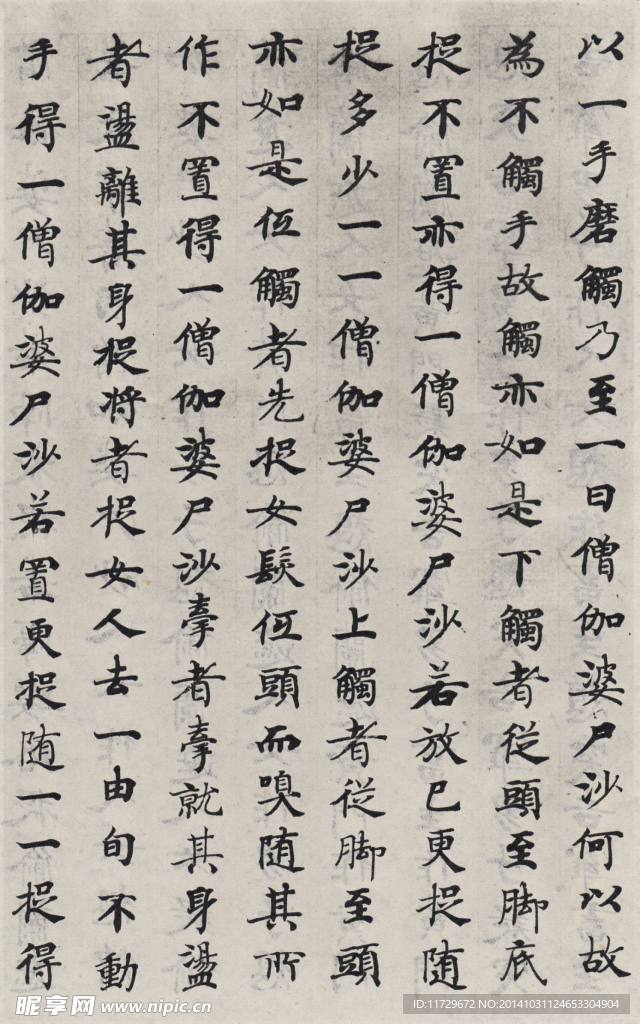 以一手磨觸乃至一日僧伽婆尸沙何以故
為不觸手故觸亦如是下觸者從頭至脚底
捉不置亦得一僧伽婆尸沙若放已更捉随
捉多少一一僧伽婆尸沙上觸者從脚至頭
亦如是仾觸者先捉女髮仾頭而嗅随其所
作不置得一僧伽婆尸沙牽者牽就其身盪
者盪離其身捉将者捉女人去一由旬不動
手得一僧伽婆尸沙若置更捉随一一捉得
昵享网 www.nipic.cn
ID:11729672 NO:20141031124653304904